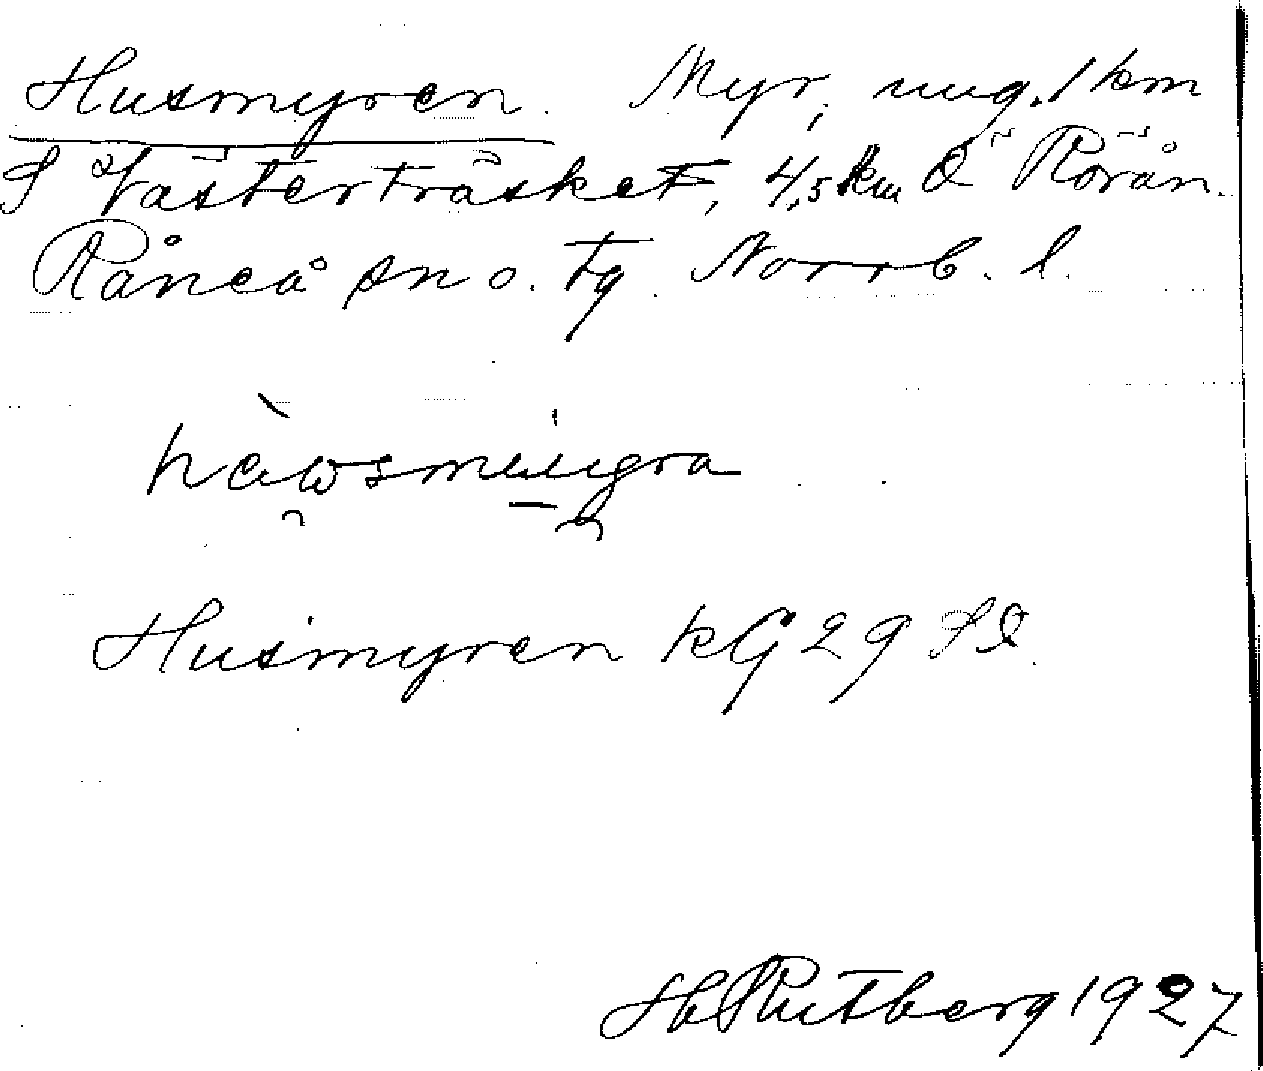 Husmyren. Myr, ung. 1 km
S Västerträsket, 4,5 km Ö Rörån.
Råneå sn o. tg. Norrb. l.
Husmyren kG 29 SÖ
Hb Rutberg 1927